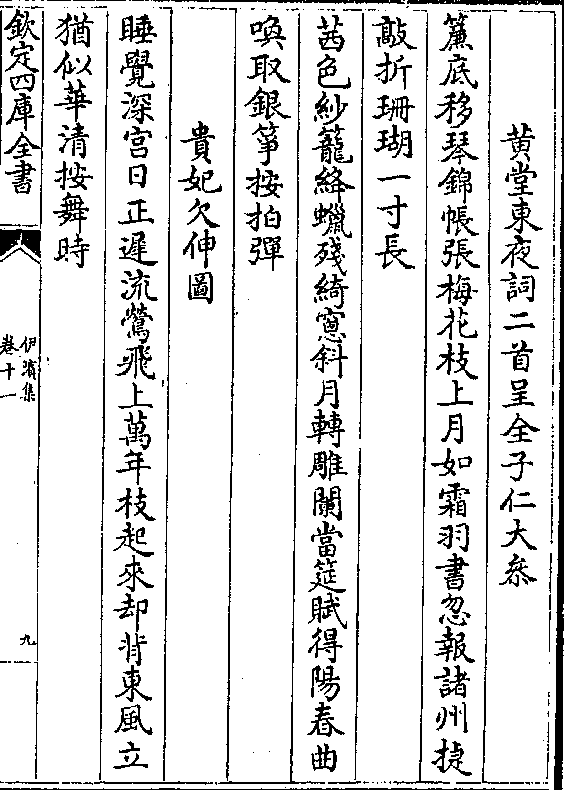 黄堂東夜詞二首呈全子仁大叅
簾底移琴錦帳張梅花枝上月如霜羽書忽報諸州捷
敲折珊瑚一寸長
茜色紗籠絳蠟殘綺窻斜月轉雕闌當筵賦得陽春曲
喚取銀箏按拍彈
貴妃欠伸圖
睡覺深宫日正遲流鶯飛上萬年枝起來却背東風立
猶似華清按舞時
欽定四庫全書
伊濱集
卷十一
九